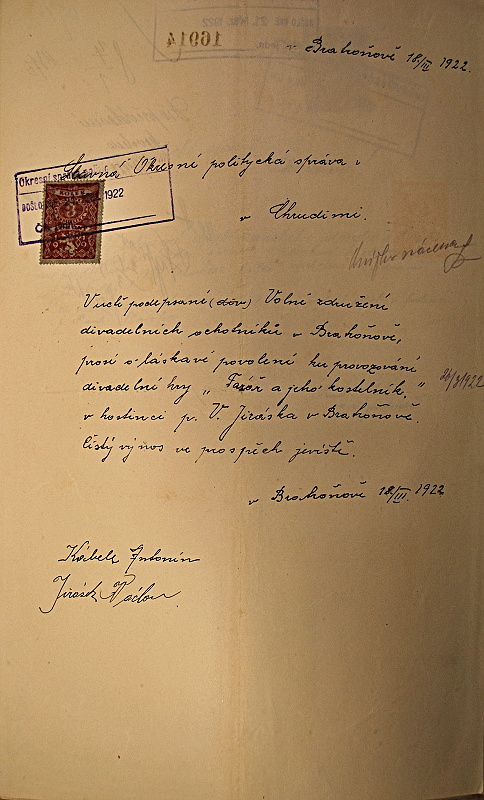 16914
v Brahoňově 18/III 1922.
Slavná Okresní politycká správa v
Okresní sp
DOŠLO
1922
KOLEK
v Chrudimi.
V úctě podepsaní (dův) Volné združení
divadelních ochotníků v Brahoňově,
prosí o láskavé povolení ku provozování
divadelní hry „Farář a jeho kostelník,"
v hostinci p. V. Jiráska v Brahoňově.
čistý výnos ve prospěch jeviště.
v Brahoňově 18/III. 1922
Kábele Antonín
Jirásek Václav